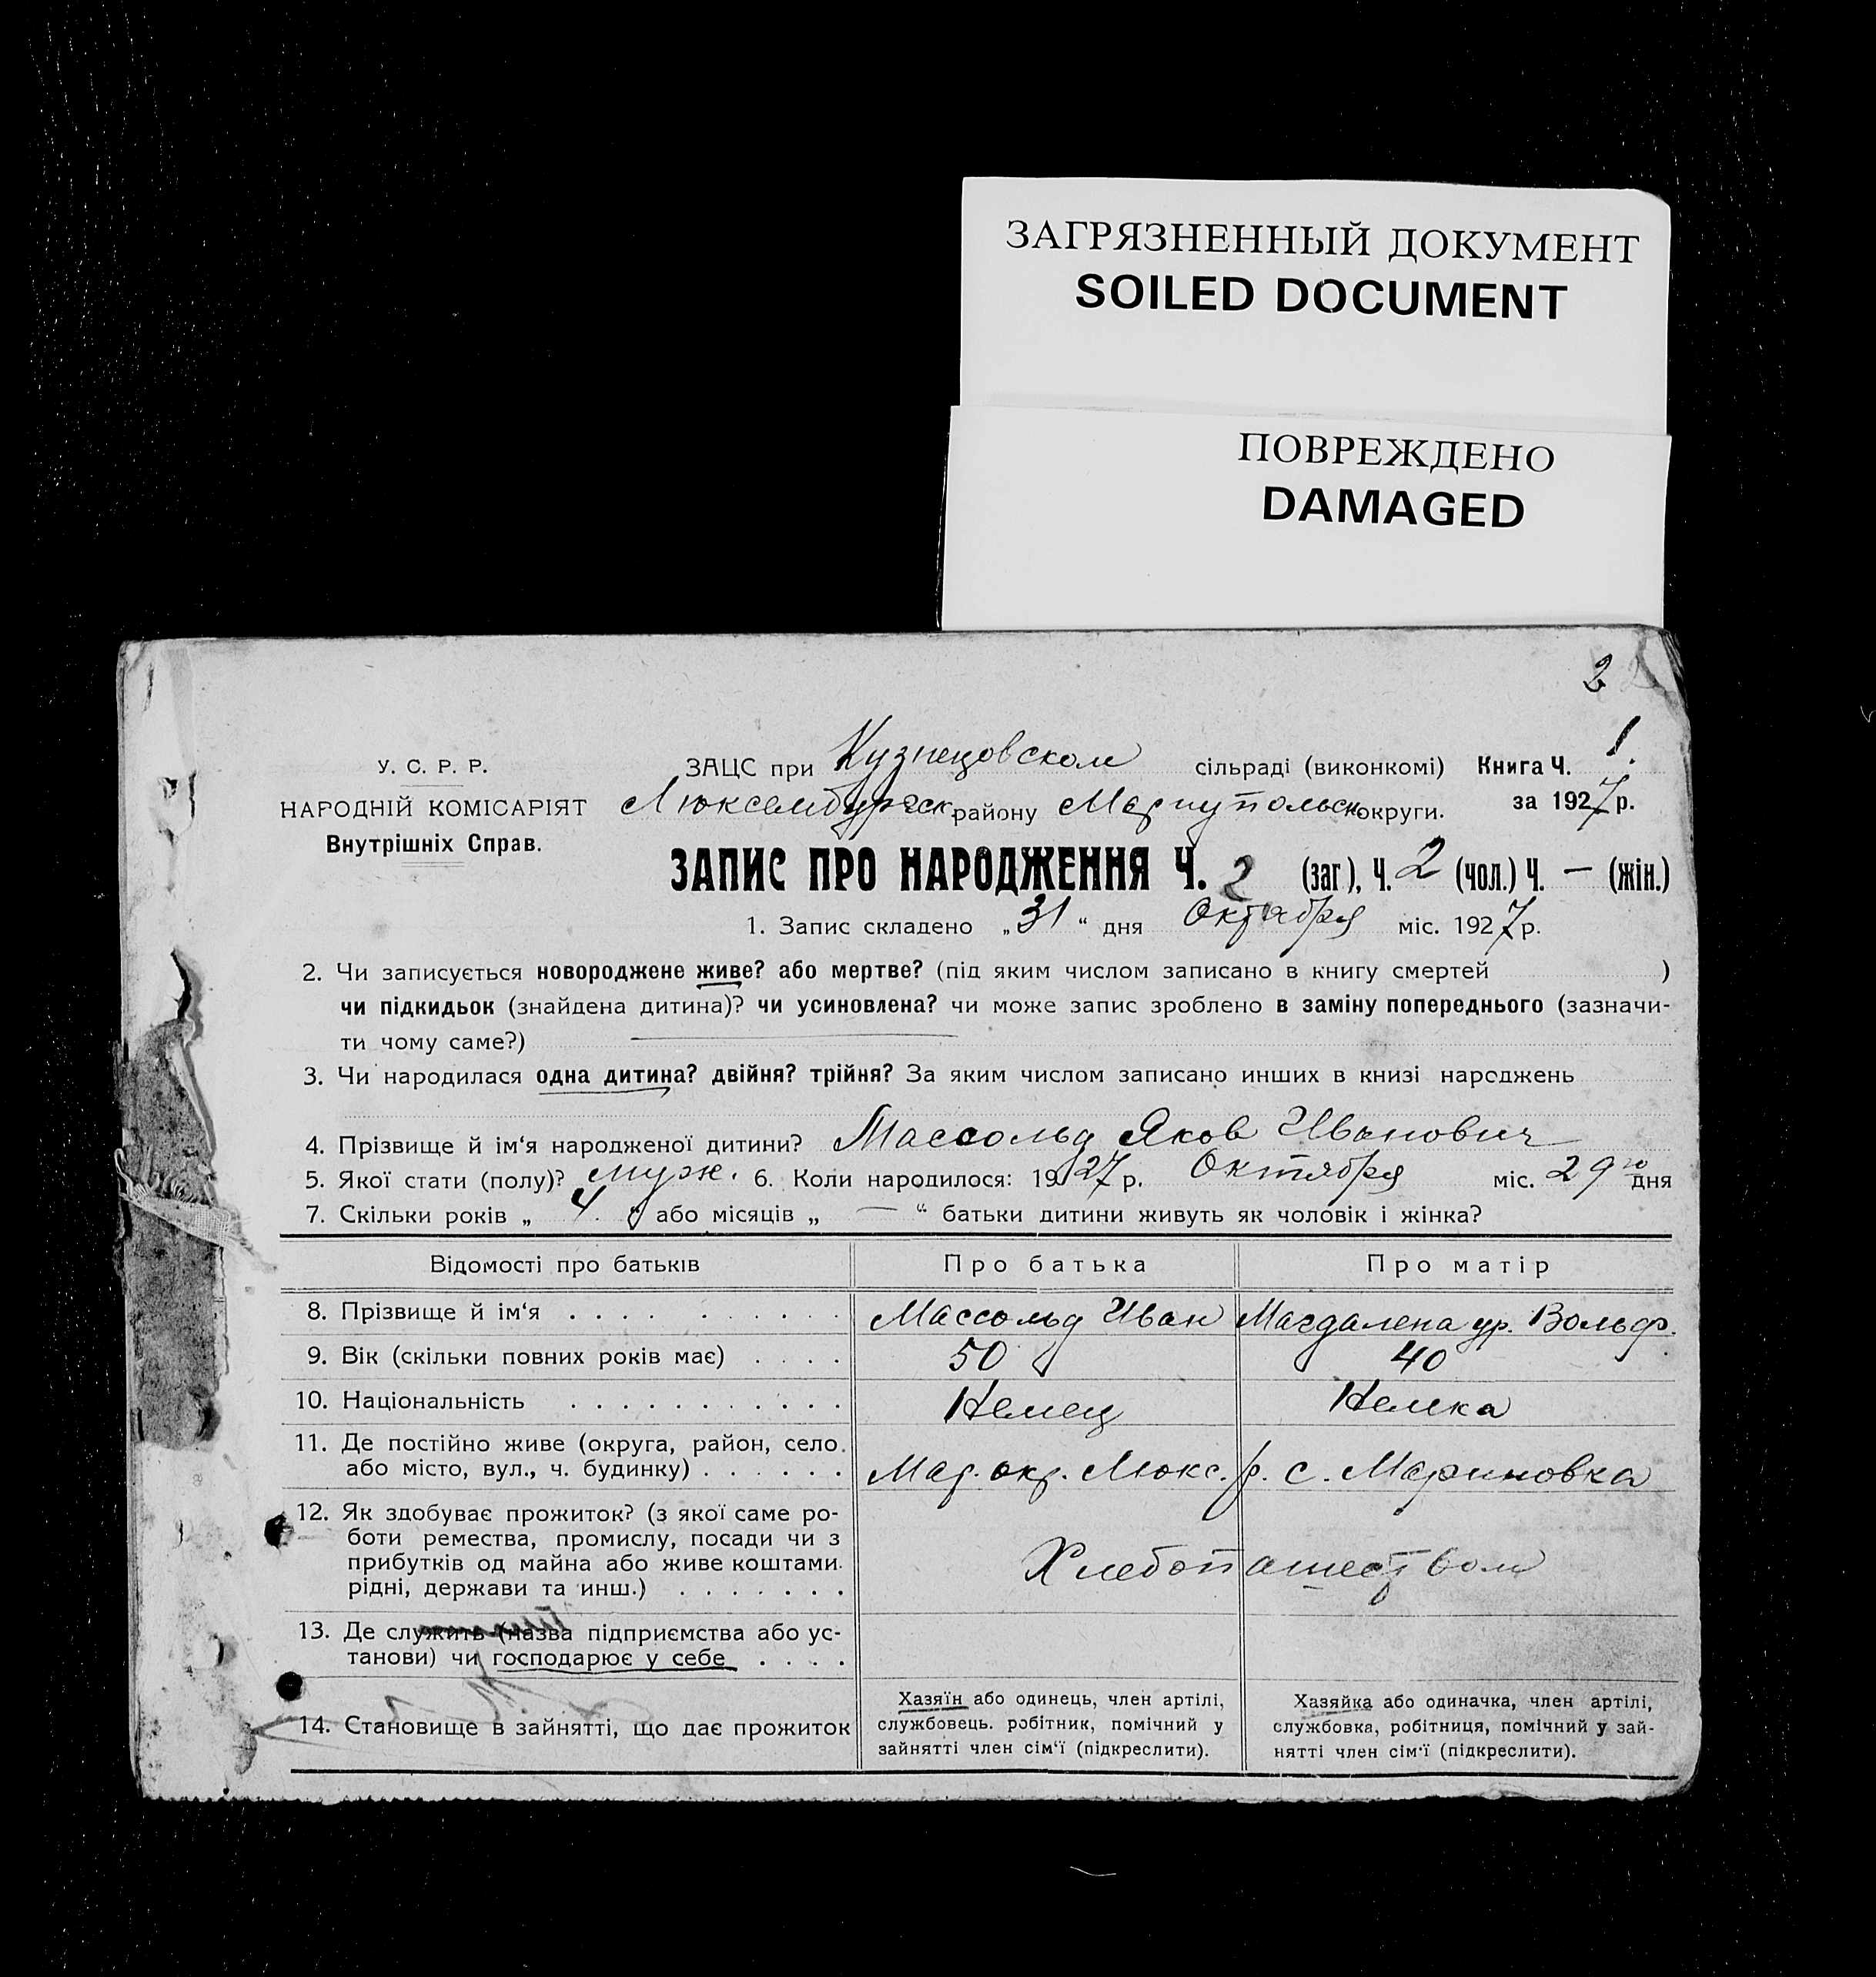 ЗАГРЯЗНЕННЫЙ ДОКУМЕНТ
SOILED DOCUMENT
ПОВРЕЖДЕНО
DAMAGED
2
У. С. Р. Р.
НАРОДНІЙ КОМІСАРІЯТ
Внутрішніх Справ.
ЗАЦС при Кузнецовском сільраді (виконкомі) Книга Ч. 1.
Люксембургск. району Мариупольск. округи. за 1927 р.
ЗАПИС ПРО НАРОДЖЕННЯ Ч. 2 (заг), Ч. 2 (чол.) Ч. — (жін.)
1. Запис складено „31“ дня Октября міс. 1927 р.
2. Чи записується новороджене живе? або мертве? (під яким числом записано в книгу смертей )
чи підкидьок (знайдена дитина)? чи усиновлена? чи може запис зроблено в заміну попереднього (зазначи-
ти чому саме?)
3. Чи народилася одна дитина? двійня? трійня? За яким числом записано инших в книзі народжень
4. Прізвище й ім‘я народженої дитини? Массольд Яков Иванович
5. Якої стати (полу)? муж. 6. Коли народилося: 1927 р. Октября міс. 29го дня
7. Скільки років „ 4 “ або місяців „ — “ батьки дитини живуть як чоловік і жінка?
Відомості про батьків Про батька Про матір
8. Прізвище й ім‘я . . . . . . . . . . Массольд Иван Магдалена ур. Вольф.
9. Вік (скільки повних років має) . . . . 50 40
10. Національність . . . . . . . . . . . Немец Немка
11. Де постійно живе (округа, район, село.
або місто, вул., ч. будинку) . . . . . . Мар. окр. Люкс. р. с. Мариновка
12. Як здобуває прожиток? (з якої саме ро-
боти ремества, промислу, посади чи з
прибутків од майна або живе коштами
рідні, держави та инш.) . . . . . . . Хлебопашеством
13. Де служить (назва підприємства або ус-
танови) чи господарює у себе . . . .
14. Становище в зайнятті, що дає прожиток
Хазяїн або одинець, член артілі,
службовець. робітник, помічний у
зайнятті член сім‘ї (підкреслити).
Хазяйка або одиначка, член артілі,
службовка, робітниця, помічний у зай-
нятті член сім‘ї (підкреслити).